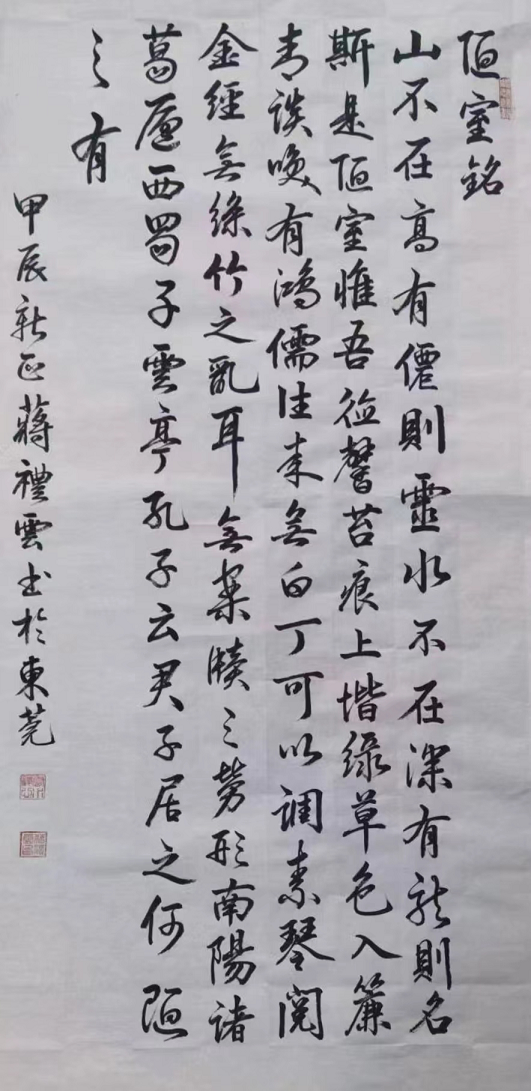 陋室銘
山不在高有僊則靈水不在深有龍則名
斯是陋室惟吾德馨苔痕上堦緑草色入簾
青談咲有鴻儒往来無白丁可以調素琴閲
金經無絲竹之亂耳無案牘之勞形南陽諸
葛廬西蜀子雲亭孔子云君子居之何陋
之有
甲辰新正蔣禮雲书於東莞